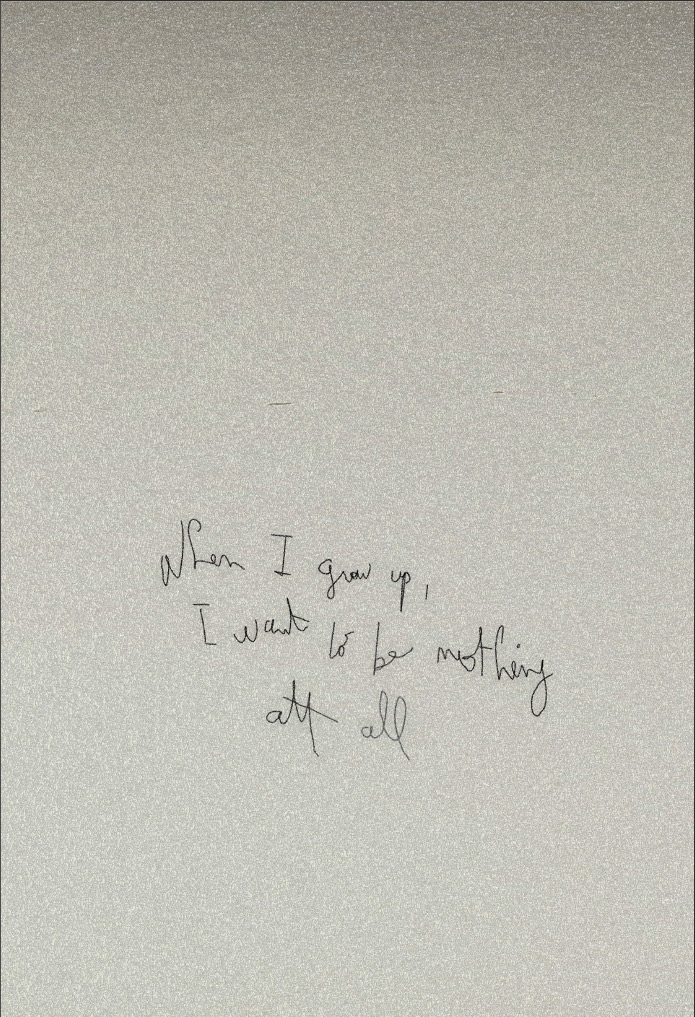 When I grow up,
I want to be nothing
at all